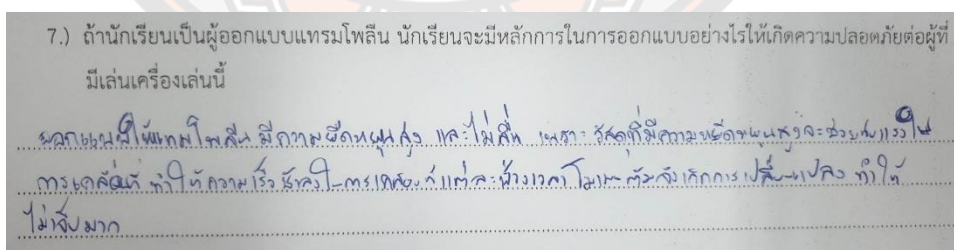 7.) ถ้านักเรียนเป็นผู้ออกแบบแทรมโพลีน นักเรียนจะมีหลักการในการออกแบบอย่างไรให้เกิดความปลอดภัยต่อผู้ที่
มีเล่นเครื่องเล่นนี้
ออกแบบให้แทรมโพลีน มีความยืดหยุ่นสูง และไม่ลื่น เพราะ วัสดุที่มีความยืดหยุ่นสูงจะช่วย แรงใน
การเคลื่อนที่ ทำให้ความเร็ว ในการเคลื่อนที่แต่ละช่วงเวลา โมเมนตัมจึงเกิดการเปลี่ยนแปลง ทำให้
ไม่เจ็บมาก